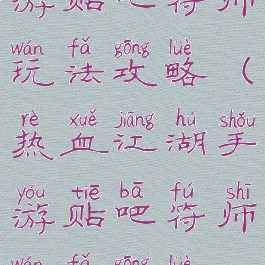 游贴吧符师
wán fǎ gōng lüè
玩法攻略（
rè xuě jiāng hú shǒu
热血江湖手
yóu tiē bā fú shī
游贴吧符师
wán fǎ gōng lüè